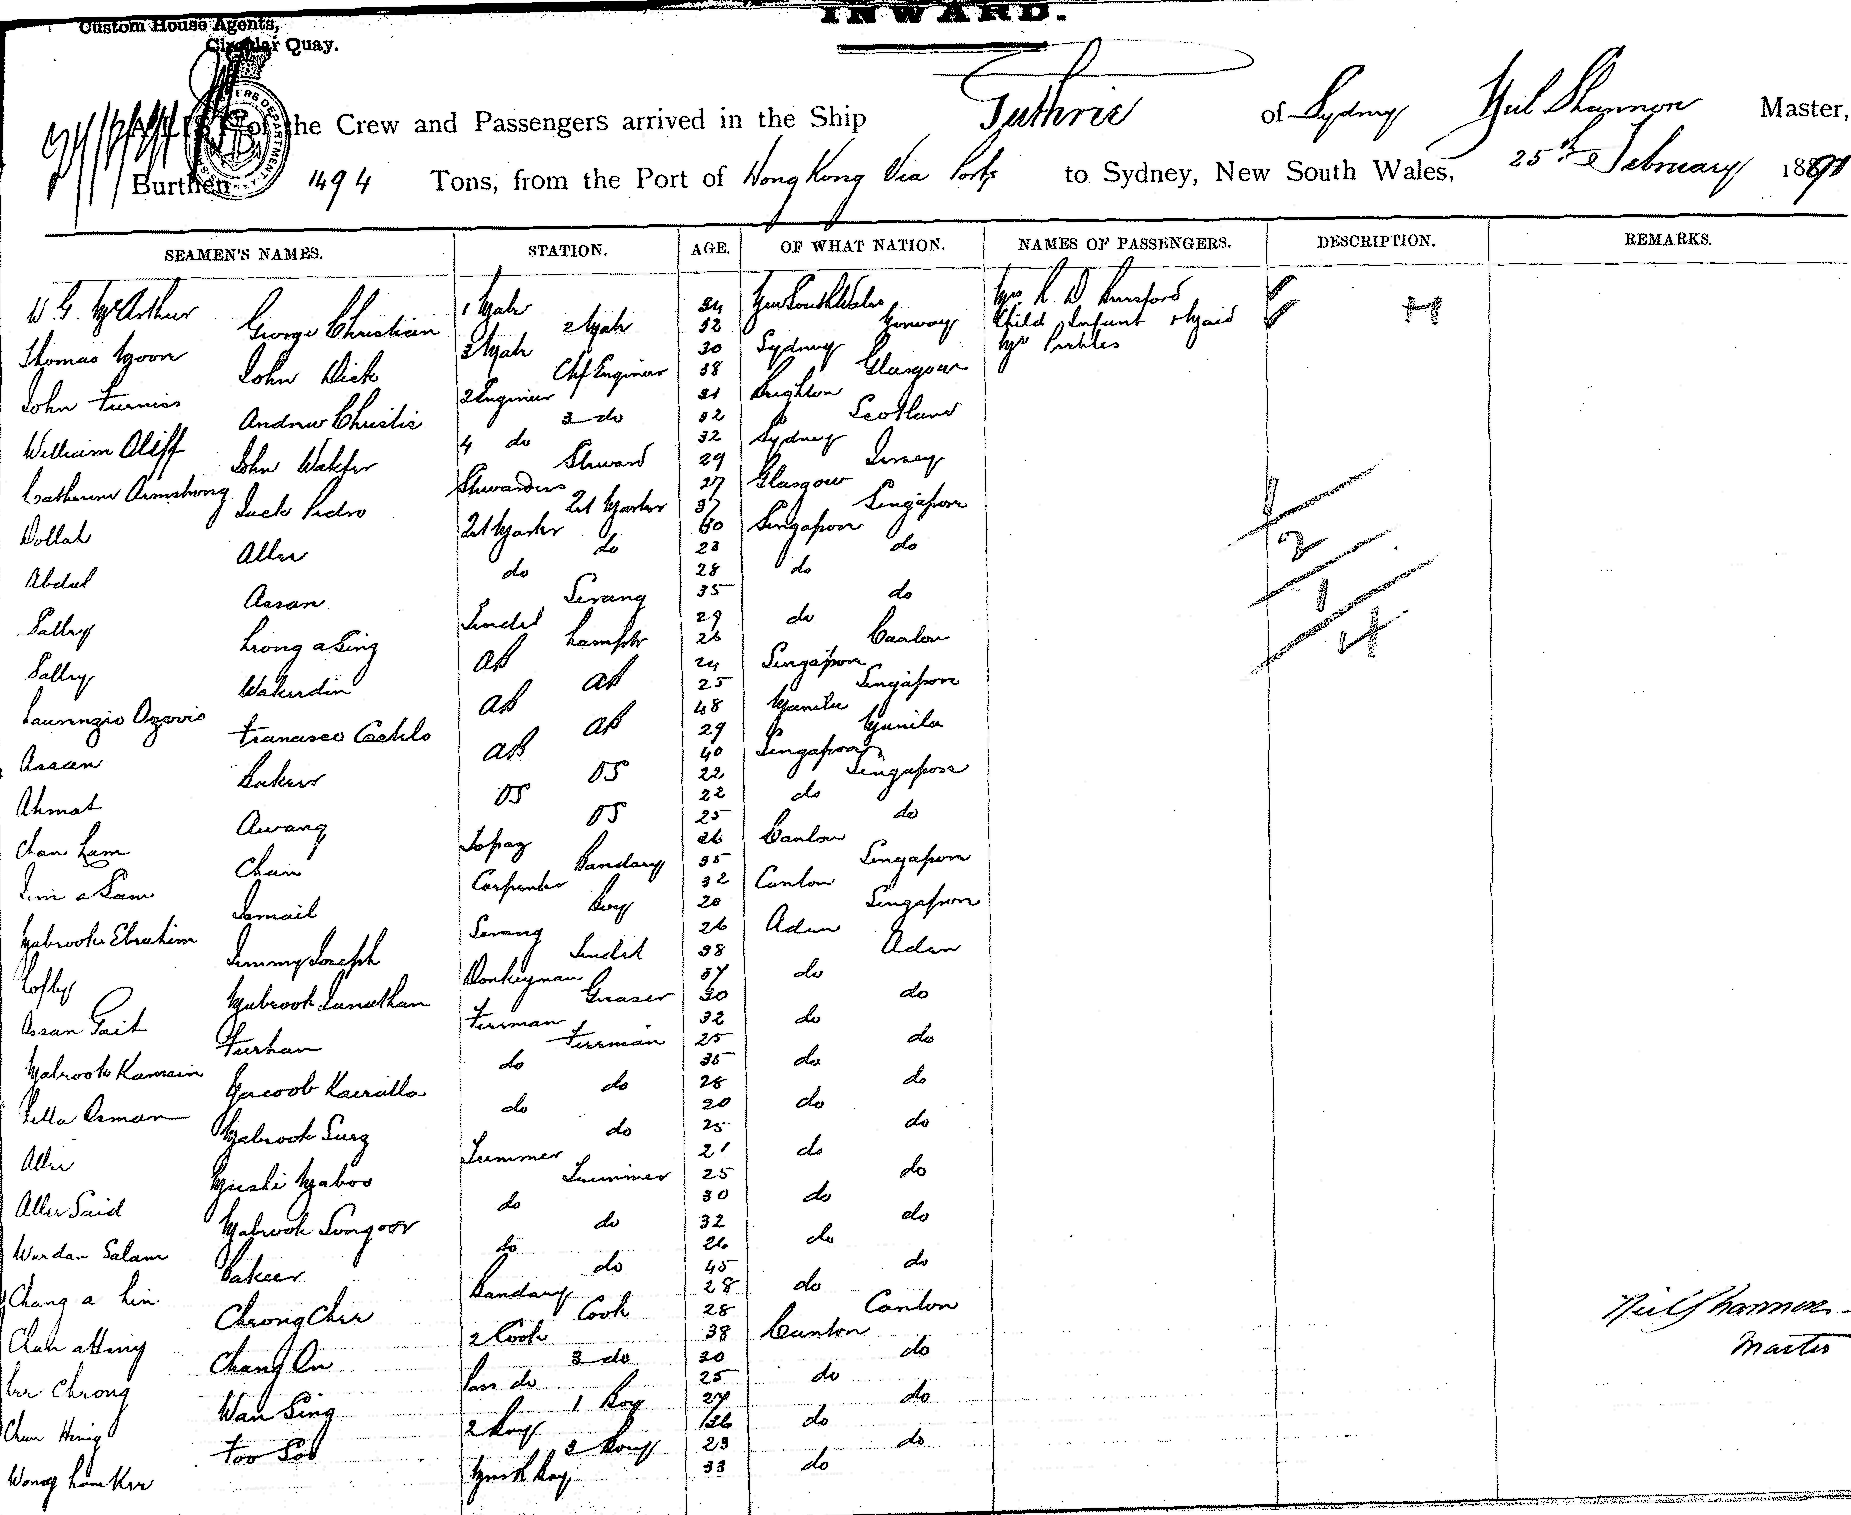 INWARD.
Custom House Agents,
Circular Quay.
A LIST of the Crew and Passengers arrived in the Ship Guthrie of Sydney Neil Shannon Master,
Burthen 1494 Tons, from the Port of Hong Kong Via Ports to Sydney, New South Wales, 25th February 1891
SEAMEN'S NAMES. STATION. AGE. OF WHAT NATION. NAMES OF PASSENGERS. DESCRIPTION. REMARKS.
W G McArthur 1 Mate 34 New South Wales Mrs R D
George Christian 2 Mate 32 Norway Child Infant & Maid
Thomas Moon 3 Mate 30 Sydney Mr Peebles
John Dick Chf Engineer 38 Glasgow
John Furniss 2 Engineer 31 Brighton
Andrew Christie 3 do 32 Scotland
William Oliff 4 do 32 Sydney
John Walker Steward 29 Jersey
Catherine Armstrong Stewardess 27 Glasgow
Jack Pedro Qt Master 37 Singapore
Dollah Qt Master 30 Singapore
Aller do 23 do
Abdul do 28 do
Assan Serang 35 do
Salley Tindal 29 do
Lamptr 26 Canton
Salley AB 24 Singapore
Wakerdin AB 25 Singapore
AB 48 Manila
Francisco AB 29 Manila
Assan AB 40 Singapore
Bakeer OS 22 Singapore
Ahmat OS 22 do
Awang OS 25 do
Chan Lam Topaz 26 Canton
Chan Bandary 35 Singapore
Carpenter 32 Canton
Ismail Boy 20 Singapore
Mabrook Ebrahim Serang 26 Aden
Jimmy Joseph Tindal 38 Aden
Donkeyman 37 do
Mabrook Greaser 30 do
Assan Fireman 32 do
Furhan Fireman 25 do
Mabrook do 35 do
Yacoob do 28 do
Osman do 20 do
Mabrook do 25 do
Aller Trimmer 21 do
Trimmer 25 do
Aller Said do 30 do
Mabrook do 32 do
Salam do 26 do
Bakeer do 45 do
Chang a Bandary 28 do
Cook 28 Canton
Chan 2 Cook 38 Canton
Chang On 3 do 30 do
Pass do 25 do
Wan Sing 1 Boy 27 do
Chan 2 Boy 26 do
Foo 3 Boy 23 do
Wong Mess R Boy 33 do
1
2
1
4
Neil Shannon
Master